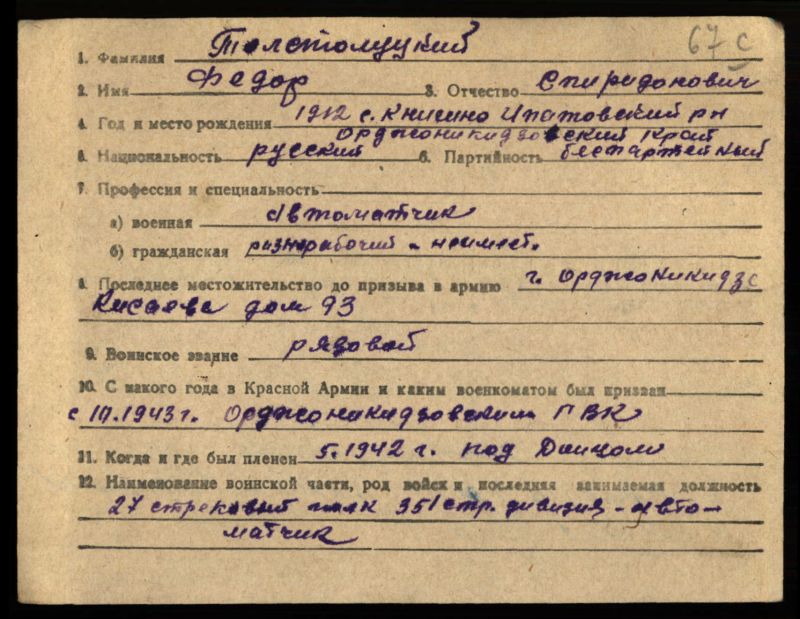 67 с
1. Фамилия Толстолуцкий
2. Имя Федор 3. Отчество Спиридонович
4. Год и место рождения 1912 с. Книгино Ипатовский рн
Орджоникидзовский край
5. Национальность русский 6. Партийность беспартейный
7. Профессия и специальность
а) военная автоматчик
б) гражданская разнорабочий
8. Последнее местожительство до призыва в армию г. Орджоникидзе
дом 93
9. Воинское звание рядовой
10. С какого года в Красной Армии и каким военкоматом был призван
с 1943 г. Орджоникидзовским ГВК
11. Когда и где был пленен 5.1942 г. под
12. Наименование воинской части, род войск и последняя занимаемая должность
27 стрековый полк 351 стр. дивизия - авто-
матчик